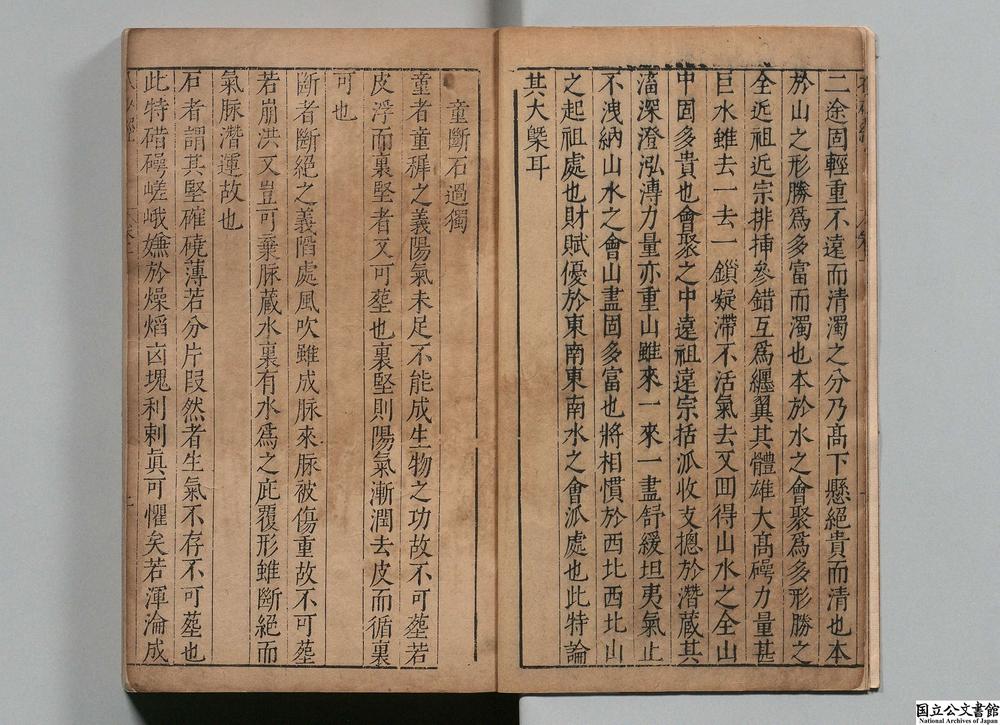 二途固輕重不遠而清濁之分乃髙下懸絕貴而清也本
於山之形勝爲多富而濁也本於水之會聚爲多形勝之
全近祖近宗排揷參錯互爲纒翼其體雄大髙礴力量甚
巨水雖去一去一鎖疑滯不活氣去又囬得山水之全山
中固多貴也會聚之中遠祖遠宗括派收支摠於潛蔵其
滀深澄泓漙力量亦重山雖來一來一盡舒緩坦夷氣止
不洩納山水之會山盡固多富也將相慣於西北西北山
之起祖處也財賦優於東南東南水之會派處也此特論
其大槩耳
童斷石過獨
童者童穉之義陽氣未足不能成生物之功故不可塟若
皮浮而裏堅者又可塟也裏堅則陽氣漸潤去皮而循裏
可也
斷者斷絕之義䧟處風吹雖成脉來脉被傷重故不可塟
若崩洪又豈可棄脉蔵水裏有水爲之庇覆形雖斷絕而
氣脉潛運故也
石者謂其堅確磽薄若分片叚然者生氣不存不可塟也
此特礚礴嵯峨嫌於燥熖凶塊利剌眞可懼矣若渾淪成
National Archives of Japan
国立公文書館